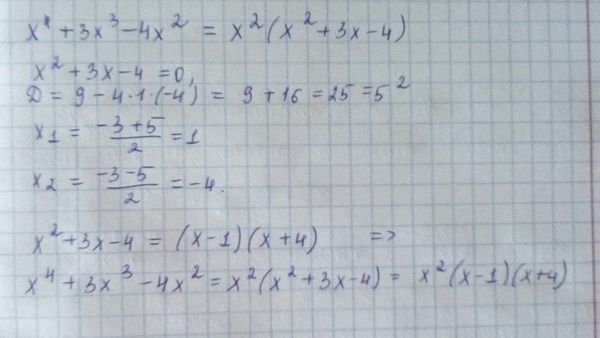 x⁴ + 3x³ - 4x² = x²(x² + 3x - 4)
x² + 3x - 4 = 0,
D = 9 - 4·1·(-4) = 9 + 16 = 25 = 5²
x₁ = (-3+5)/2 = 1
x₂ = (-3-5)/2 = -4.
x² + 3x - 4 = (x-1)(x+4) =>
x⁴ + 3x³ - 4x² = x²(x² + 3x - 4) = x²(x-1)(x+4)